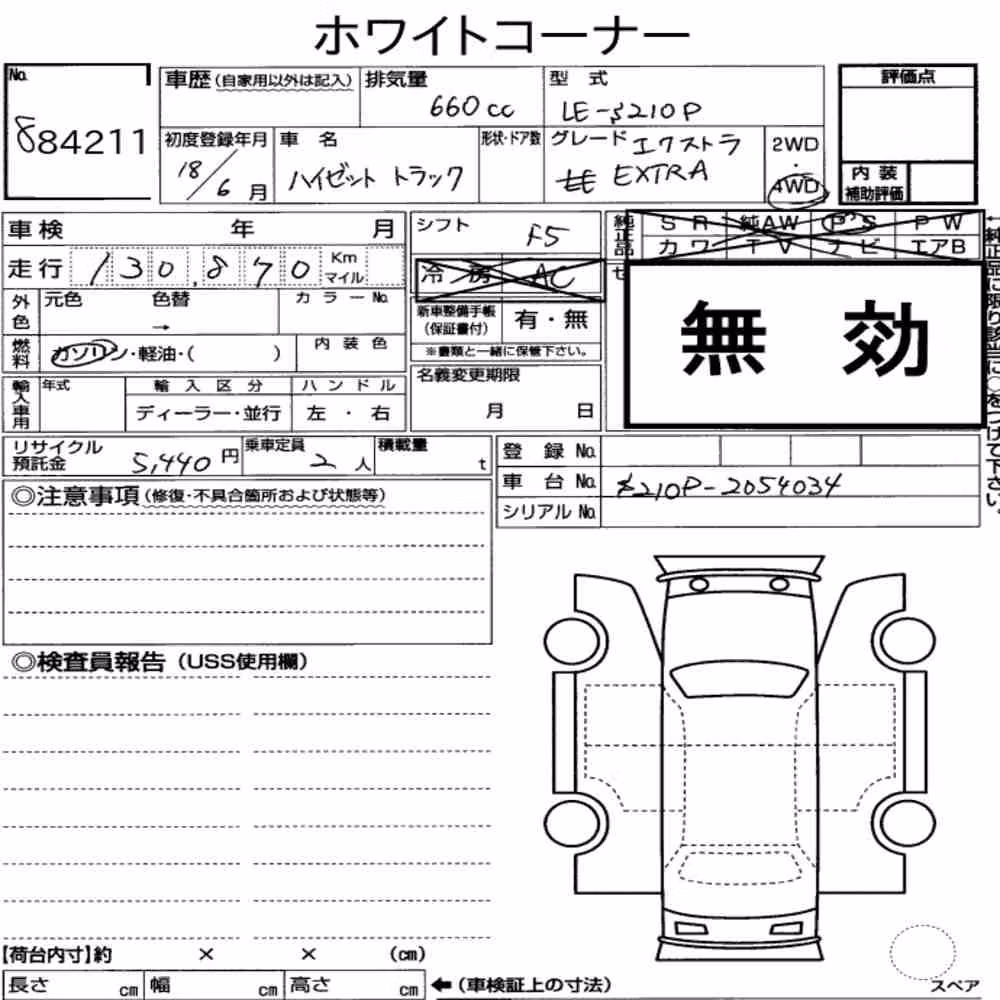 ホワイトコーナー
No. 車歴(自家用以外は記入) 排気量 型式 評価点
884211 660cc LE-S210P
初度登録年月 車名 形状・ドア数 グレード エクストラ 2WD
18/6月 ハイゼット トラック EXTRA ・ 4WD
内装補助評価
車検 年 月 シフト F5 純正品 SR 純AW PS PW
カワ TV ナビ エアB
走行 130,870 Km マイル 冷房 AC
外色 元色 色替 カラーNo. 新車整備手帳(保証書付) 有・無
→ 無効
燃料 ガソリン・軽油・( ) 内装色 ※書類と一緒に保管下さい。
輸入車用 年式 輸入区分 ハンドル 名義変更期限
ディーラー・並行 左・右 月 日
←純正品に限り該当に○をつけて下さい。
リサイクル預託金 5,440円 乗車定員 2人 積載量 t 登録No.
車台No. S210P-2054034
シリアルNo.
◎注意事項(修復・不具合箇所および状態等)
◎検査員報告(USS使用欄)
【荷台内寸】約 × × (cm)
長さ cm 幅 cm 高さ cm ←(車検証上の寸法)
スペア